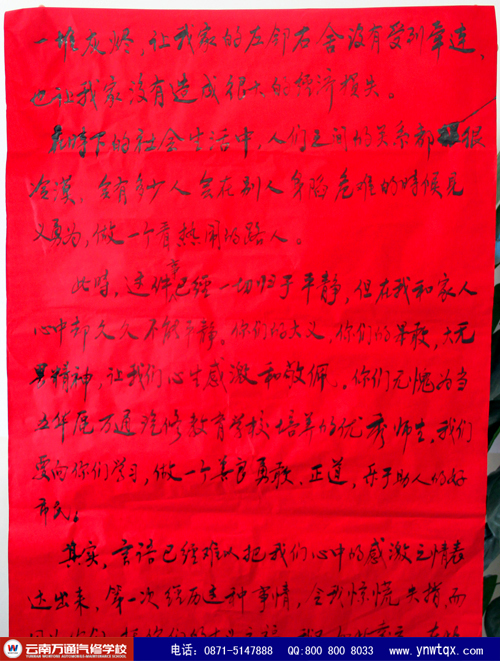 一堆灰烬，让我家的左邻右舍没有受到牵连，
也让我家没有造成很大的经济损失。
在时下的社会生活中，人们之间的关系都很
冷漠，会有多少人会在别人身陷危难的时候见
义勇为，做一个看热闹的路人。
此时，这件事已经一切归于平静，但在我和家人
心中却久久不能平静。你们的大义，你们的果敢，大无
畏精神，让我们心生感激和敬佩。你们无愧为当
五华区万通汽修教育学校培养的优秀师生，我们
要向你们学习，做一个善良勇敢、正道，乐于助人的好
市民。
其实，言语已经难以把我们心中的感激之情表
达出来，第一次经历这种事情，全我惊慌失措，而
云南万通汽修学校
电话：0871-5147888 QQ:800 800 8033 www.ynwtqx.com